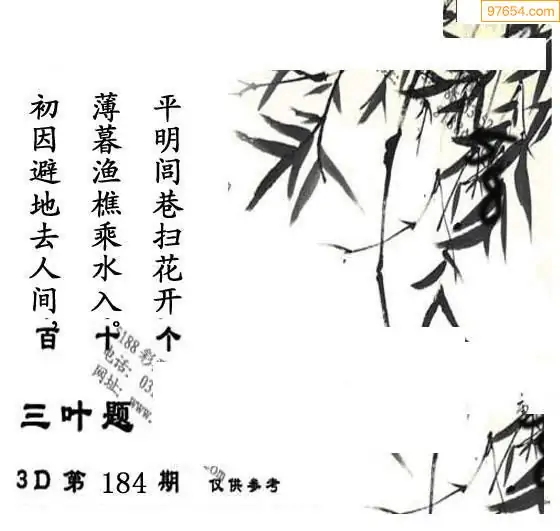 97654.com
平明闾巷扫花开
薄暮渔樵乘水入。
初因避地去人间，
百 十 个
188 彩
电话: 03
网址: www.
三叶题
3D 第 184 期 仅供参考